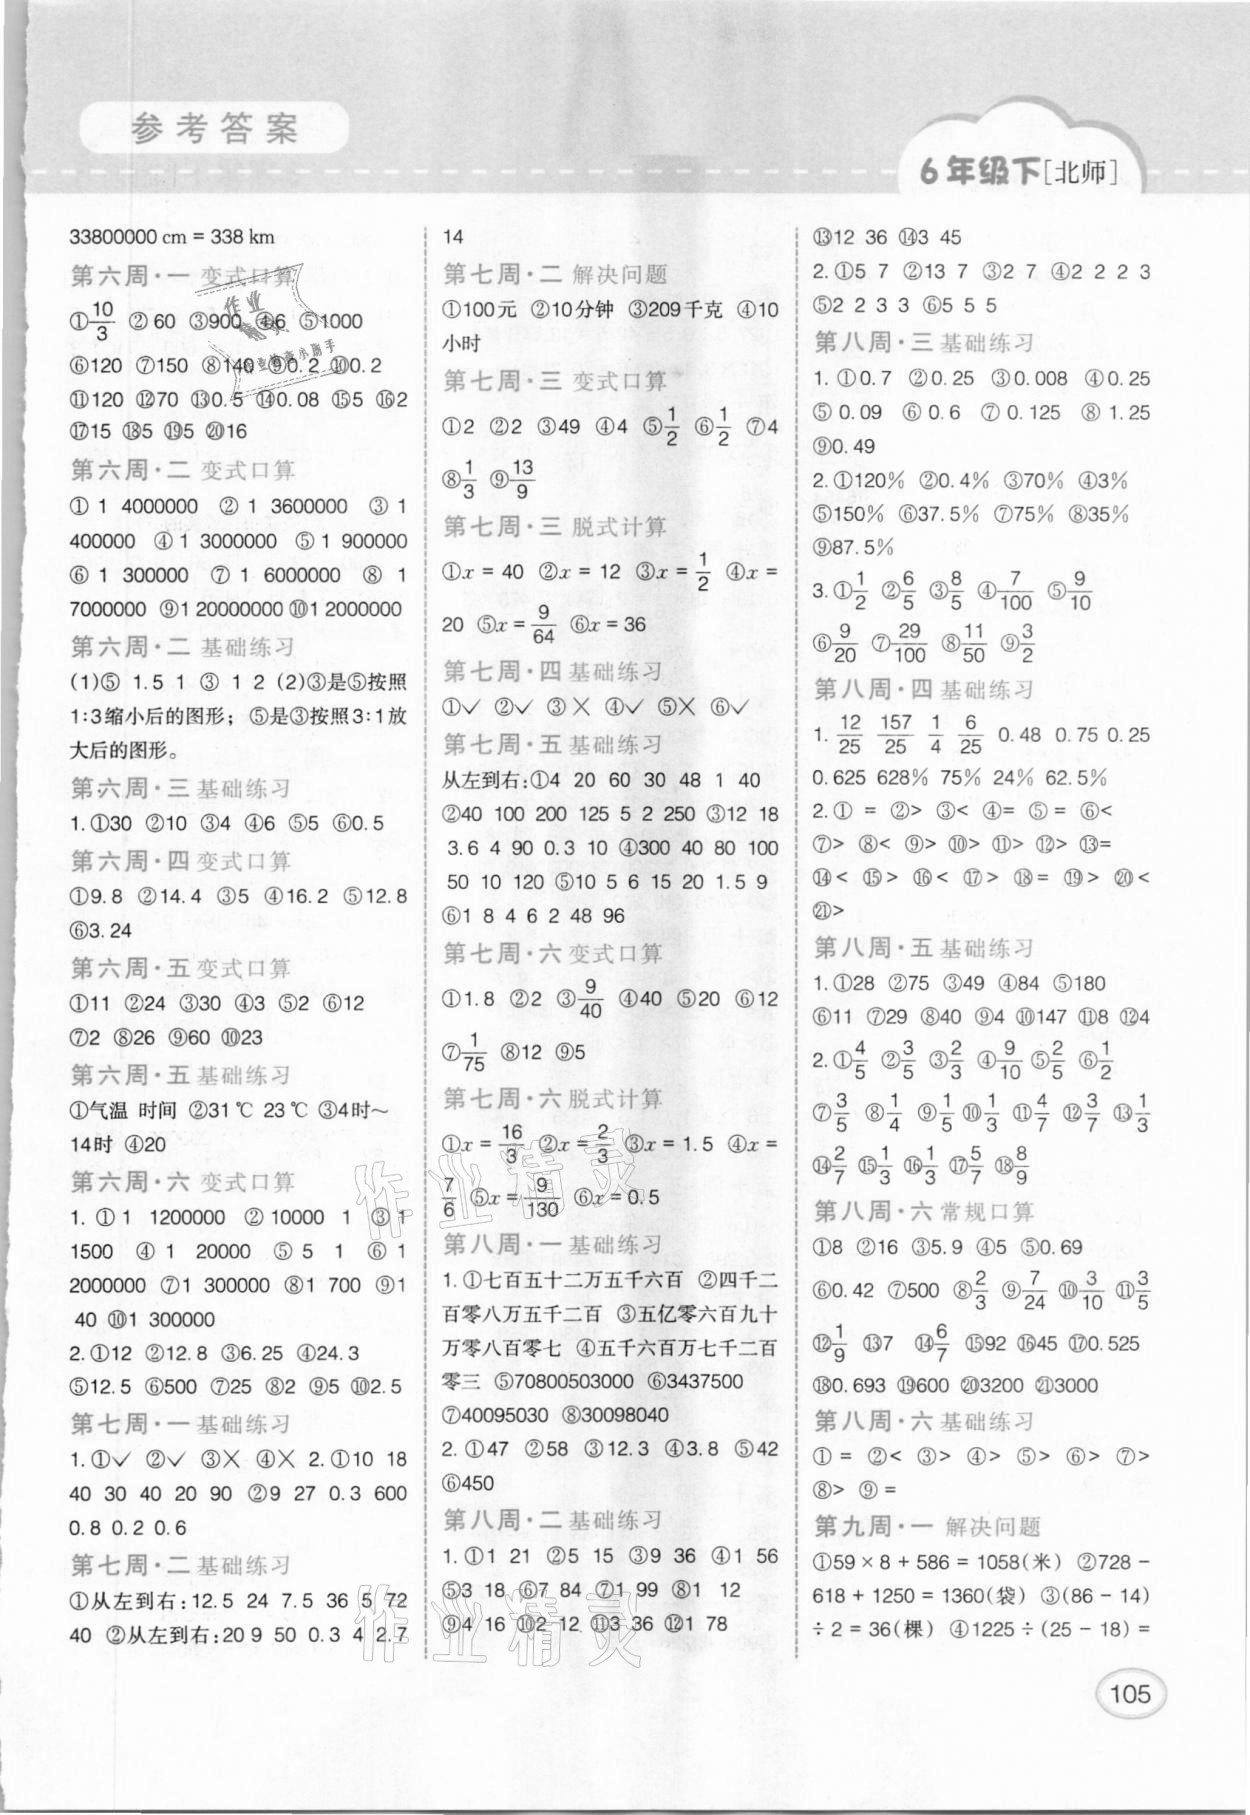 参考答案
6年级下[北师]
33800000 cm = 338 km
第六周·一 变式口算
①10/3 ②60 ③900 ④6 ⑤1000
⑥120 ⑦150 ⑧140 ⑨0.2 ⑩0.2
⑪120 ⑫70 ⑬0.5 ⑭0.08 ⑮5 ⑯2
⑰15 ⑱5 ⑲5 ⑳16
第六周·二 变式口算
①1 4000000 ②1 3600000 ③1
400000 ④1 3000000 ⑤1 900000
⑥1 300000 ⑦1 6000000 ⑧1
7000000 ⑨1 20000000 ⑩1 2000000
第六周·二 基础练习
(1)⑤ 1.5 1 ③ 1 2 (2)③是⑤按照
1:3缩小后的图形；⑤是③按照3:1放
大后的图形。
第六周·三 基础练习
1.①30 ②10 ③4 ④6 ⑤5 ⑥0.5
第六周·四 变式口算
①9.8 ②14.4 ③5 ④16.2 ⑤12.8
⑥3.24
第六周·五 变式口算
①11 ②24 ③30 ④3 ⑤2 ⑥12
⑦2 ⑧26 ⑨60 ⑩23
第六周·五 基础练习
①气温 时间 ②31℃ 23℃ ③4时~
14时 ④20
第六周·六 变式口算
1. ①1 1200000 ②10000 1 ③1
1500 ④1 20000 ⑤5 1 ⑥1
2000000 ⑦1 300000 ⑧1 700 ⑨1
40 ⑩1 300000
2.①12 ②12.8 ③6.25 ④24.3
⑤12.5 ⑥500 ⑦25 ⑧2 ⑨5 ⑩2.5
第七周·一 基础练习
1.①✓ ②✓ ③✕ ④✕ 2.①10 18
40 30 40 20 90 ②9 27 0.3 600
0.8 0.2 0.6
第七周·二 基础练习
①从左到右:12.5 24 7.5 36 5 72
40 ②从左到右:20 9 50 0.3 4 2.7
14
第七周·二 解决问题
①100元 ②10分钟 ③209千克 ④10
小时
第七周·三 变式口算
①2 ②2 ③49 ④4 ⑤1/2 ⑥1/2 ⑦4
⑧1/3 ⑨13/9
第七周·三 脱式计算
①x = 40 ②x = 12 ③x = 1/2 ④x =
20 ⑤x = 9/64 ⑥x = 36
第七周·四 基础练习
①✓ ②✓ ③✕ ④✓ ⑤✕ ⑥✓
第七周·五 基础练习
从左到右:①4 20 60 30 48 1 40
②40 100 200 125 5 2 250 ③12 18
3.6 4 90 0.3 10 ④300 40 80 100
50 10 120 ⑤10 5 6 15 20 1.5 9
⑥1 8 4 6 2 48 96
第七周·六 变式口算
①1.8 ②2 ③9/40 ④40 ⑤20 ⑥12
⑦1/75 ⑧12 ⑨5
第七周·六 脱式计算
①x = 16/3 ②x = 2/3 ③x = 1.5 ④x =
7/6 ⑤x = 9/130 ⑥x = 0.5
第八周·一 基础练习
1.①七百五十二万五千六百 ②四千二
百零八万五千二百 ③五亿零六百九十
万零八百零七 ④五千六百万七千二百
零三 ⑤70800503000 ⑥3437500
⑦40095030 ⑧30098040
2.①47 ②58 ③12.3 ④3.8 ⑤42
⑥450
第八周·二 基础练习
1.①1 21 ②5 15 ③9 36 ④1 56
⑤3 18 ⑥7 84 ⑦1 99 ⑧1 12
⑨4 16 ⑩2 12 ⑪3 36 ⑫1 78
⑬12 36 ⑭3 45
2.①5 7 ②13 7 ③2 7 ④2 2 2 3
⑤2 2 3 3 ⑥5 5 5
第八周·三 基础练习
1. ①0.7 ②0.25 ③0.008 ④0.25
⑤0.09 ⑥0.6 ⑦0.125 ⑧1.25
⑨0.49
2.①120% ②0.4% ③70% ④10%
⑤150% ⑥37.5% ⑦75% ⑧35%
⑨87.5%
3.①1/2 ②6/5 ③8/5 ④7/100 ⑤9/10
⑥9/20 ⑦29/100 ⑧11/50 ⑨3/2
第八周·四 基础练习
1. 12/25 157/25 1/4 6/25 0.48 0.75 0.25
0.625 628% 75% 24% 62.5%
2.①= ②> ③< ④= ⑤= ⑥<
⑦> ⑧< ⑨> ⑩> ⑪> ⑫> ⑬=
⑭< ⑮> ⑯< ⑰> ⑱= ⑲> ⑳<
㉑>
第八周·五 基础练习
1.①28 ②75 ③49 ④84 ⑤180
⑥11 ⑦29 ⑧40 ⑨4 ⑩147 ⑪8 ⑫4
2.①4/5 ②3/5 ③2/3 ④9/10 ⑤2/5 ⑥1/2
⑦3/5 ⑧1/4 ⑨1/5 ⑩1/3 ⑪4/7 ⑫3/7 ⑬1/3
⑭2/7 ⑮1/3 ⑯1/3 ⑰5/7 ⑱8/9
第八周·六 常规口算
①8 ②16 ③5.9 ④5 ⑤0.69
⑥0.42 ⑦500 ⑧2/3 ⑨7/24 ⑩3/10 ⑪3/5
⑫1/9 ⑬7 ⑭6/7 ⑮92 ⑯45 ⑰0.525
⑱0.693 ⑲600 ⑳3200 ㉑3000
第八周·六 基础练习
①= ②< ③> ④> ⑤> ⑥> ⑦>
⑧> ⑨=
第九周·一 解决问题
①59 × 8 + 586 = 1058(米) ②728 −
618 + 1250 = 1360(袋) ③(86 − 14)
÷ 2 = 36(棵) ④1225 ÷ (25 − 18) =
105
作业精灵
作业精灵